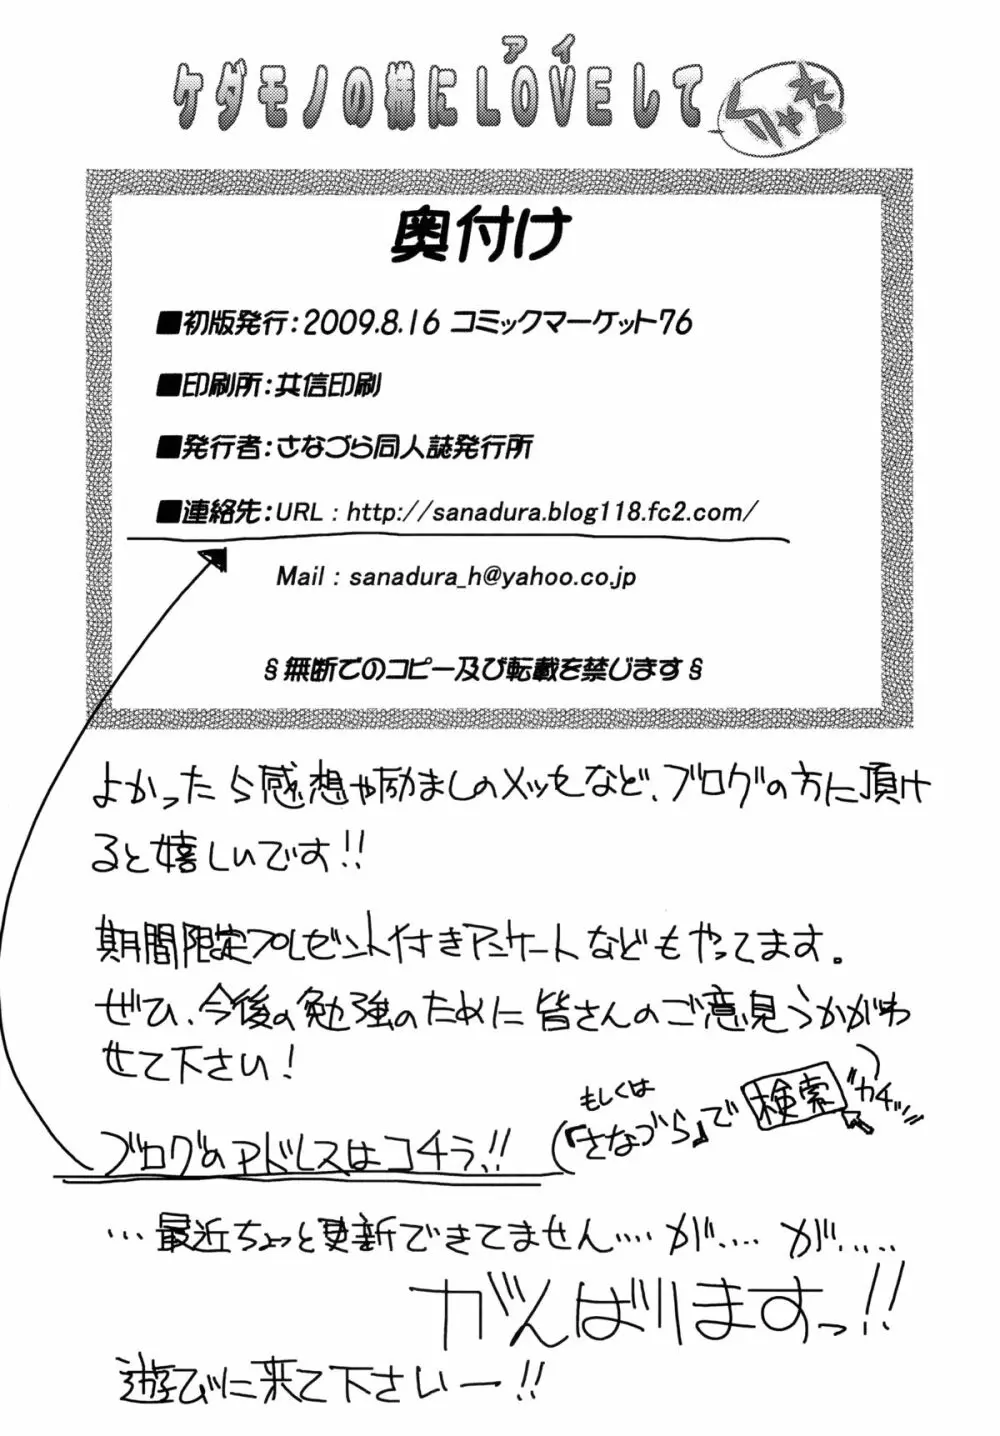 アイ
ケダモノの様にLOVEして
くりゃれ♥
奥付け
■初版発行：2009.8.16 コミックマーケット76
■印刷所：共信印刷
■発行者：さなづら同人誌発行所
■連絡先：URL : http://sanadura.blog118.fc2.com/
Mail : sanadura_h@yahoo.co.jp
§無断でのコピー及び転載を禁じます§
よかったら感想や励ましのメッセなど、ブログの方に頂け
ると嬉しいです!!
期間限定プレゼント付きアンケートなどもやってます。
ぜひ、今後の勉強のために皆さんのご意見うかがわ
せて下さい!
ブログのアドレスはコチラ!!
(もしくは
『さなづら』で 検索 カチッ)
…最近ちょっと更新できてません…. が…. が…..
がんばりますっ!!
遊びに来て下さいー!!